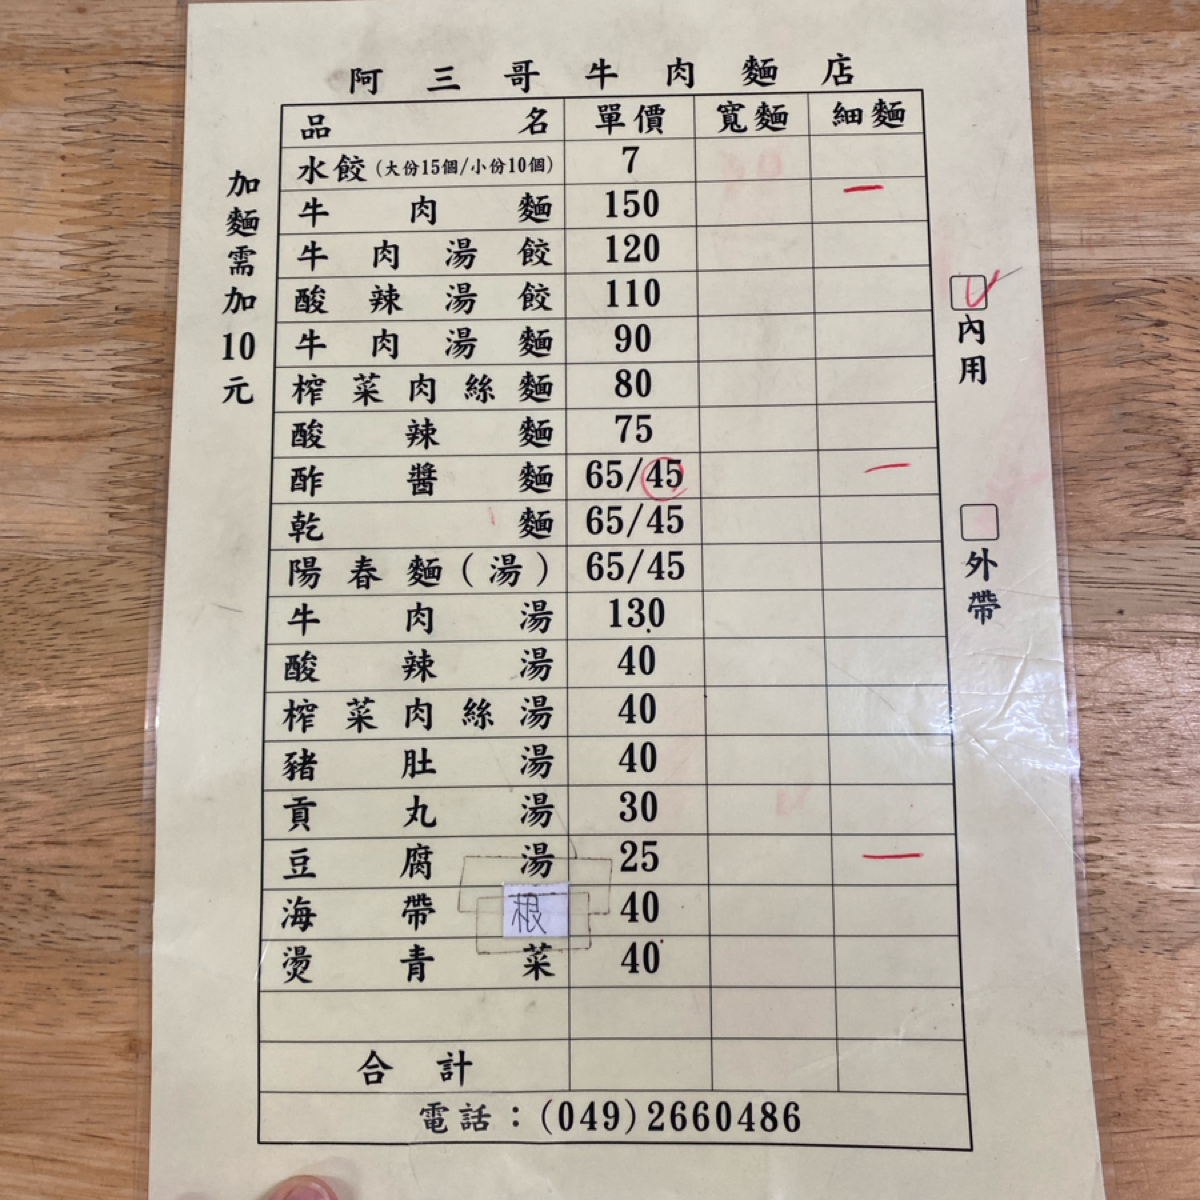 阿三哥牛肉麵店
品名 單價 寬麵 細麵
水餃(大份15個/小份10個) 7
牛肉麵 150 一
牛肉湯餃 120
酸辣湯餃 110
牛肉湯麵 90
榨菜肉絲麵 80
酸辣麵 75
酢醬麵 65/45 一
乾麵 65/45
陽春麵(湯) 65/45
牛肉湯 130
酸辣湯 40
榨菜肉絲湯 40
豬肚湯 40
貢丸湯 30
豆腐湯 25 一
海帶根 40
燙青菜 40
合計
電話：(049)2660486
加麵需加10元
內用
外帶